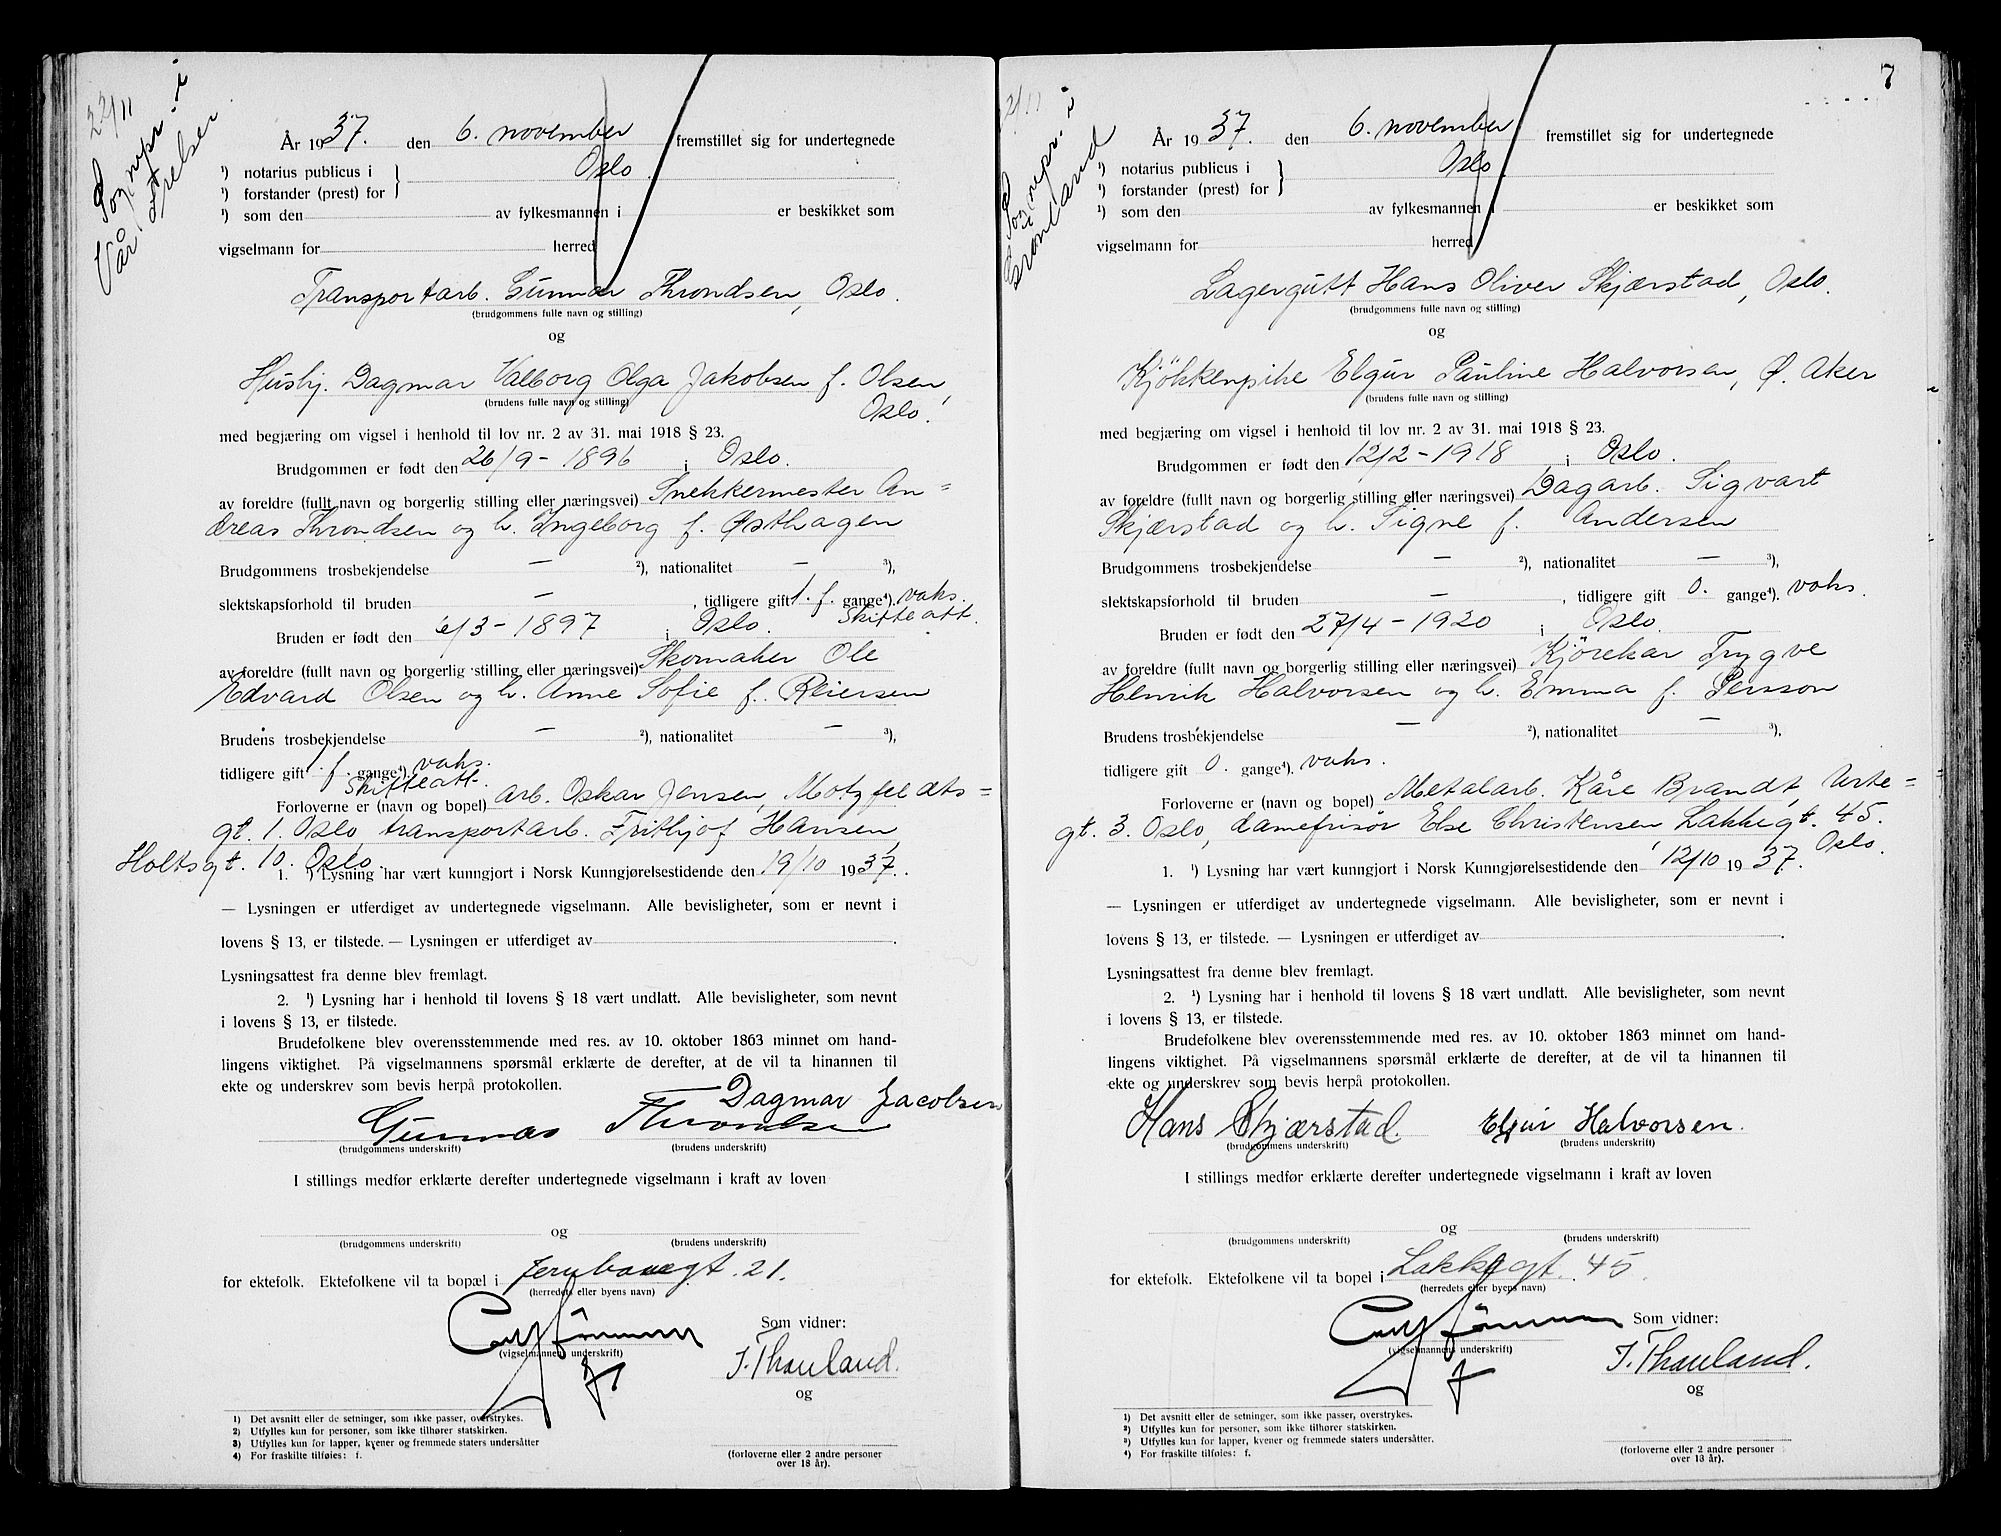 22/11
Sognepr. i
Vår Frelser
År 1937. den 6. november fremstillet sig for undertegnede
¹) notarius publicus i } Oslo.
¹) forstander (prest) for
¹) som den av fylkesmannen i er beskikket som
vigselmann for herred
Transportarb. Gunnar Throndsen, Oslo.
(brudgommens fulle navn og stilling)
og
Husbj. Dagmar Valborg Olga Jakobsen f. Olsen,
(brudens fulle navn og stilling) Oslo.
med begjæring om vigsel i henhold til lov nr. 2 av 31. mai 1918 § 23.
Brudgommen er født den 26/9 - 1896 i Oslo.
av foreldre (fullt navn og borgerlig stilling eller næringsvei) Snekkermester An=
dreas Throndsen og h. Ingeborg f. Østhagen
Brudgommens trosbekjendelse — ²), nationalitet — ³),
slektskapsforhold til bruden — , tidligere gift 1. f. gange⁴). vaks.
Skifteatt.
Bruden er født den /3 - 1897 i Oslo.
av foreldre (fullt navn og borgerlig stilling eller næringsvei) Skomaker Ole
Edvard Olsen og h. Anne Sofie f. Reiersen
Brudens trosbekjendelse — ²), nationalitet — ³),
tidligere gift 1 f. gange⁴). vaks.
Skifteatt.
Forloverne er (navn og bopel) arb. Oskar Jensen, Motzfeldts=
gt. 1. Oslo, transportarb. Frithjof Hansen,
Holtsgt. 10. Oslo.
1. ¹) Lysning har vært kunngjort i Norsk Kunngjørelsestidende den 19/10 1937.
— Lysningen er utferdiget av undertegnede vigselmann. Alle bevisligheter, som er nevnt i
lovens § 13, er tilstede. — Lysningen er utferdiget av
Lysningsattest fra denne blev fremlagt.
2. ¹) Lysning har i henhold til lovens § 18 vært undlatt. Alle bevisligheter, som nevnt
i lovens § 13, er tilstede.
Brudefolkene blev overensstemmende med res. av 10. oktober 1863 minnet om hand-
lingens viktighet. På vigselmannens spørsmål erklærte de derefter, at de vil ta hinannen til
ekte og underskrev som bevis herpå protokollen.
Dagmar Jacobsen
Gunnar Throndsen
(brudgommens underskrift) (brudens underskrift)
I stillings medfør erklærte derefter undertegnede vigselmann i kraft av loven
og
(brudgommens underskrift) (brudens underskrift)
for ektefolk. Ektefolkene vil ta bopæl i Jernbanegt. 21.
(herredets eller byens navn)
Som vidner:
(vigselmannens underskrift)
J. Thauland.
og
¹) Det avsnitt eller de setninger, som ikke passer, overstrykes.
²) Utfylles kun for personer, som ikke tilhører statskirken.
³) Utfylles kun for lapper, kvener og fremmede staters undersåtter
⁴) For fraskilte tilføies: f.
(forloverne eller 2 andre personer
over 18 år).
7
2/11
Sognepr. i
Grønland
År 1937. den 6. november fremstillet sig for undertegnede
¹) notarius publicus i } Oslo.
¹) forstander (prest) for
¹) som den av fylkesmannen i er beskikket som
vigselmann for herred
Lagergutt Hans Oliver Skjærstad, Oslo.
(brudgommens fulle navn og stilling)
og
Kjökkenpike Elgur Pauline Halvorsen, Ø. Aker
(brudens fulle navn og stilling)
med begjæring om vigsel i henhold til lov nr. 2 av 31. mai 1918 § 23.
Brudgommen er født den 12/2 - 1918 i Oslo.
av foreldre (fullt navn og borgerlig stilling eller næringsvei) Dagarb. Sigvart
Skjærstad og h. Signe f. Andersen
Brudgommens trosbekjendelse — ²), nationalitet — ³),
slektskapsforhold til bruden — , tidligere gift 0. gange⁴). vaks.
Bruden er født den 27/4 - 1920 i Oslo.
av foreldre (fullt navn og borgerlig stilling eller næringsvei) Kjörekar Trygve
Henrik Halvorsen og h. Emma f. Persson
Brudens trosbekjendelse — ²), nationalitet — ³),
tidligere gift 0. gange⁴). vaks.
Forloverne er (navn og bopel) Metalarb. Kåre Brandt, Urte=
gt. 3. Oslo, damefrisør Else Christensen Lakkegt. 45.
Oslo.
1. ¹) Lysning har vært kunngjort i Norsk Kunngjørelsestidende den 12/10 1937.
— Lysningen er utferdiget av undertegnede vigselmann. Alle bevisligheter, som er nevnt i
lovens § 13, er tilstede. — Lysningen er utferdiget av
Lysningsattest fra denne blev fremlagt.
2. ¹) Lysning har i henhold til lovens § 18 vært undlatt. Alle bevisligheter, som nevnt
i lovens § 13, er tilstede.
Brudefolkene blev overensstemmende med res. av 10. oktober 1863 minnet om hand-
lingens viktighet. På vigselmannens spørsmål erklærte de derefter, at de vil ta hinannen til
ekte og underskrev som bevis herpå protokollen.
Hans Skjærstad. Elgur Halvorsen.
(brudgommens underskrift) (brudens underskrift)
I stillings medfør erklærte derefter undertegnede vigselmann i kraft av loven
og
(brudgommens underskrift) (brudens underskrift)
for ektefolk. Ektefolkene vil ta bopel i Lakkegt. 45.
(herredets eller byens navn)
Som vidner:
(vigselmannens underskrift)
J. Thauland.
og
¹) Det avsnitt eller de setninger, som ikke passer, overstrykes.
²) Utfylles kun for personer, som ikke tilhører statskirken.
³) Utfylles kun for lapper, kvener og fremmede staters undersåtter.
⁴) For fraskilte tilføies: f.
(forloverne eller 2 andre personer
over 18 år).